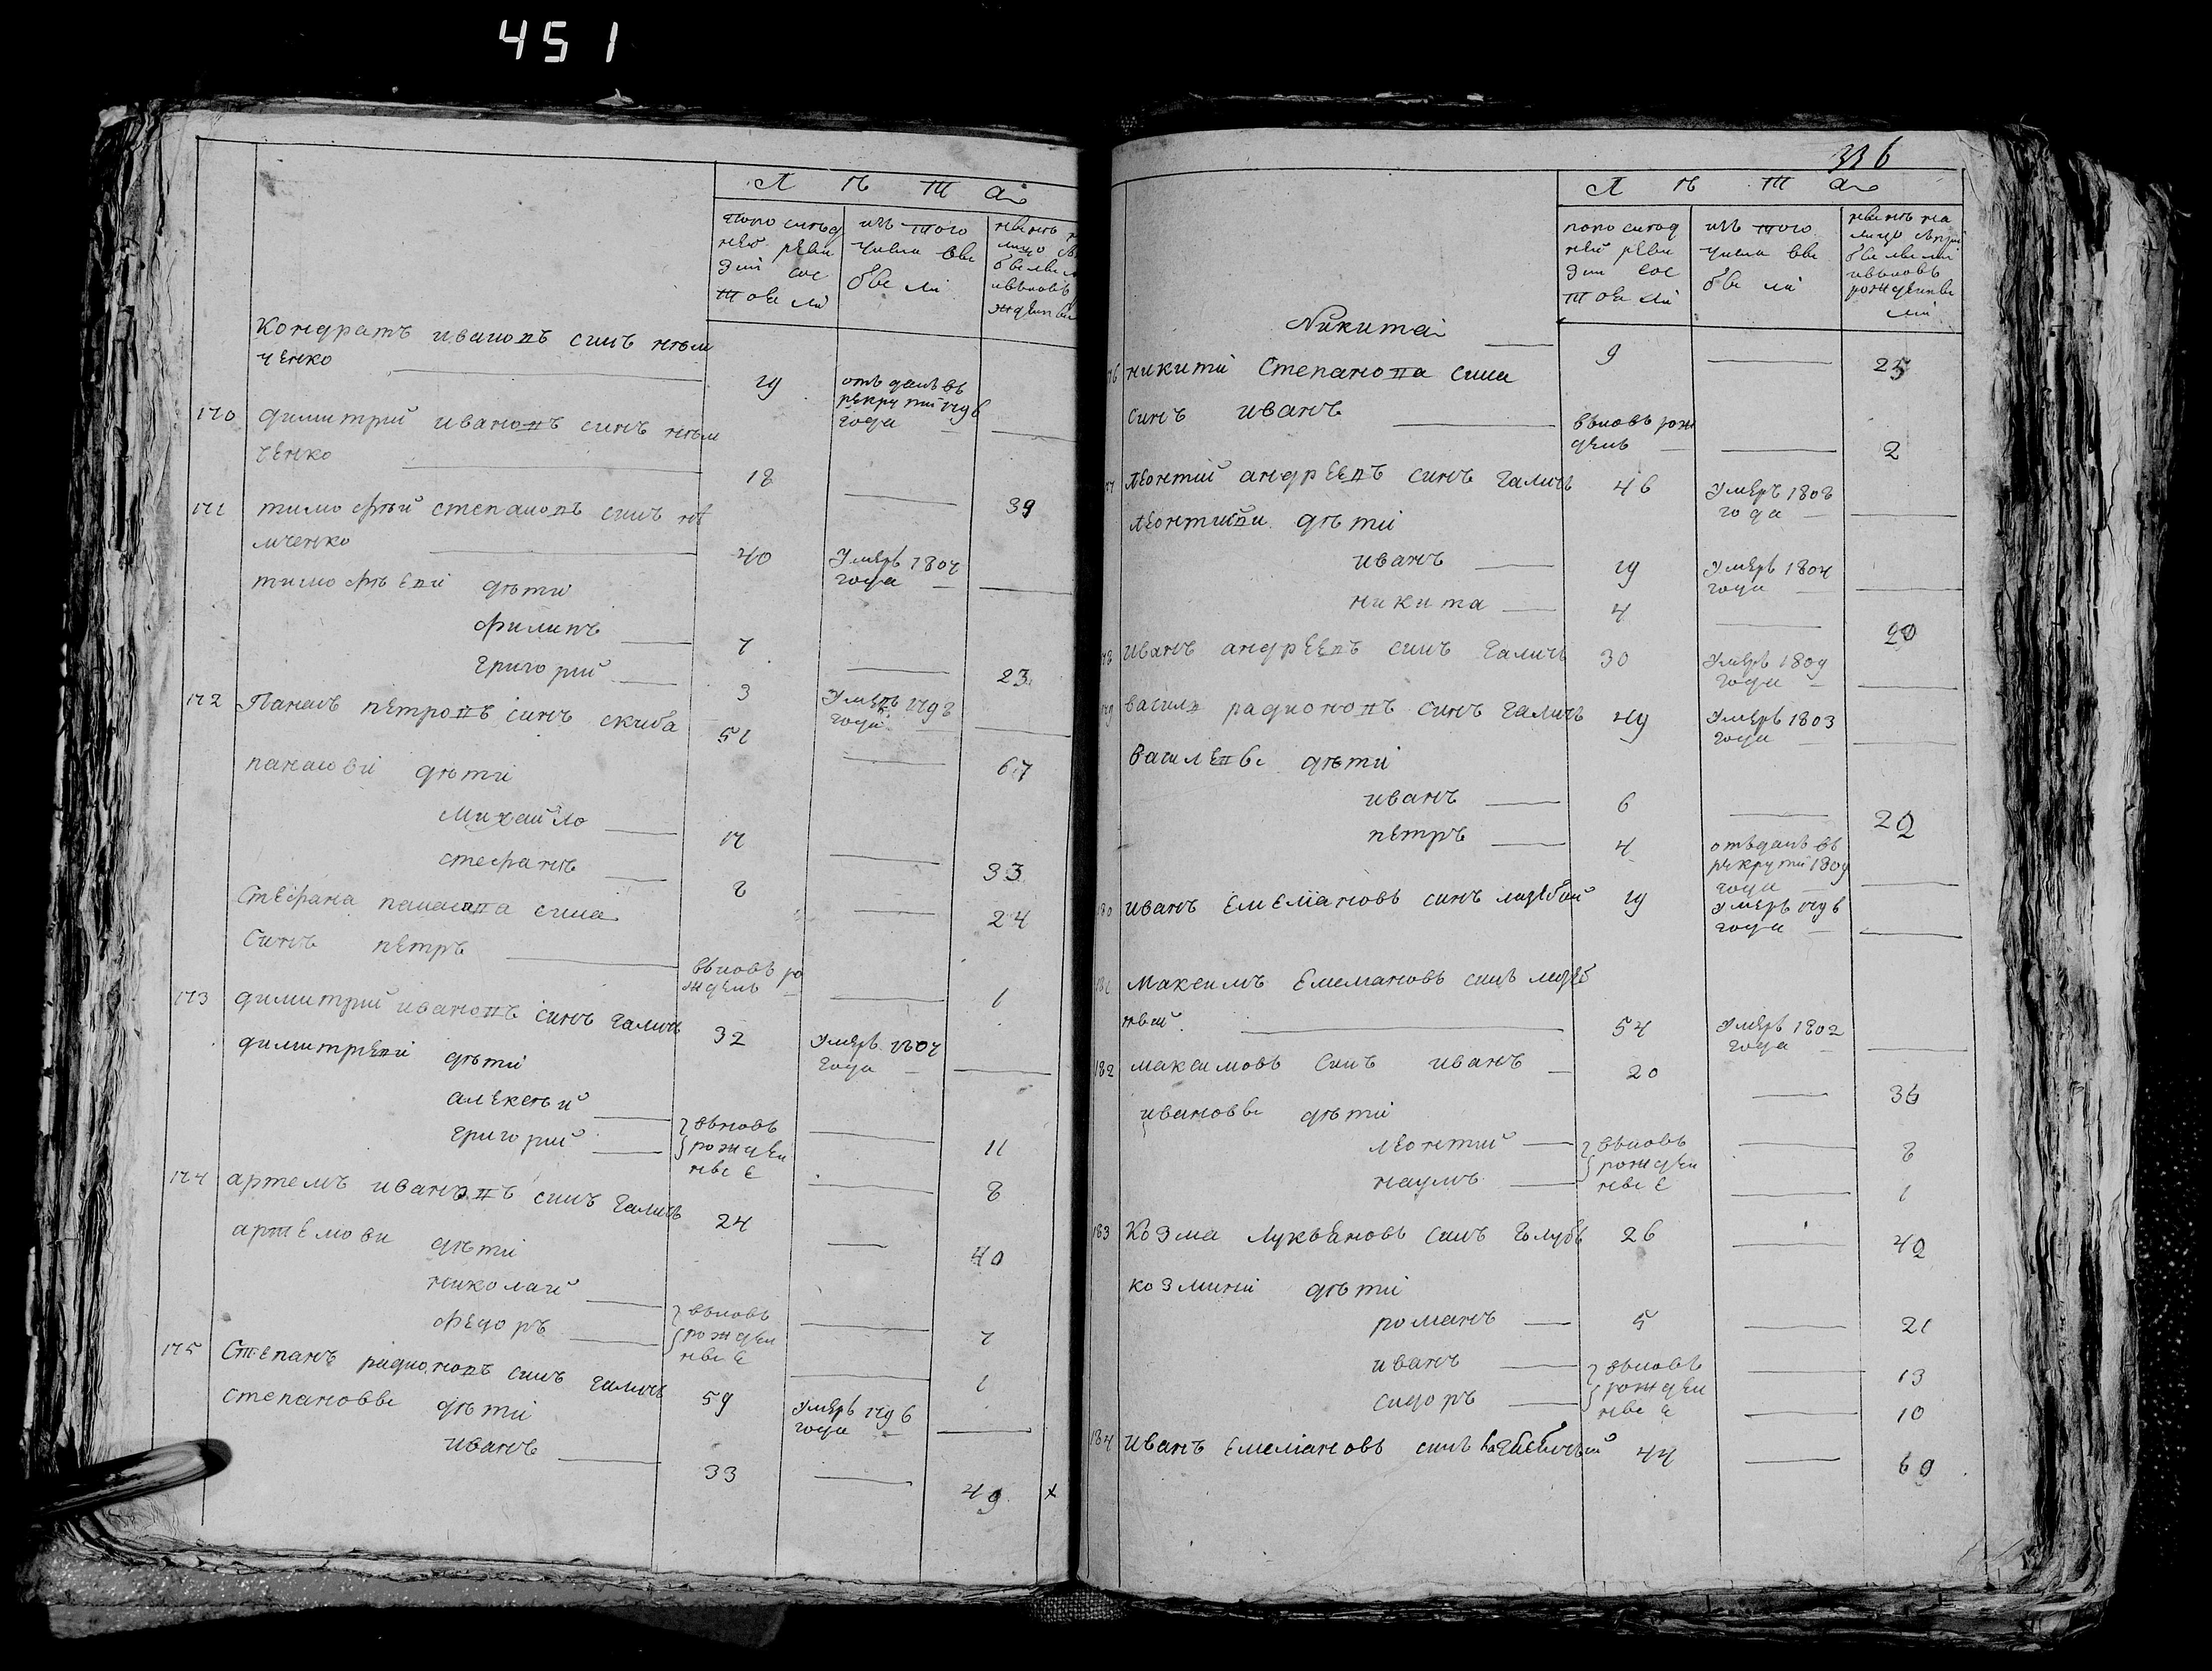 451
Л Ѣ Т А
по по слѣд
ней реви
зіи сос
тояли
изъ того
числа вы
были
Кондратъ ивановъ синъ нѣм
ченко
19
отъданъ въ
рекруты 1796
года
170 димитрий ивановъ синъ нѣм
ченко
18
39
171 тимофѣй степановъ синъ нѣ
мченко
40
Умеръ 1807
года
тимофѣеви дѣти
филипъ
7
23
григорий
3
Умеръ 1798
года
172 Панасъ петровъ синъ скиба
51
67
панасови дѣти
Михайло
17
33
стефанъ
8
24
Стефана панасова сина
Синъ петръ
вьновь ро
жденъ
1
173 димитрий ивановъ синъ галичъ
32
Умеръ 1807
года
димитреви дѣти
алексѣй
григорий
вьновь
рожден
ные
11
8
174 артемъ ивановъ синъ галичъ
24
40
артемови дѣти
николай
федоръ
вьновь
рожден
ные
7
1
175 Степанъ радионовъ синъ галичъ
59
Умеръ 1796
года
степановы дѣти
иванъ
33
49 x
336
Л Ѣ Т А
по по слѣд
ней реви
зіи сос
тояли
изъ того
числа вы
были
нынѣ на
лицо
Никита
9
25
никити Степанова сина
синъ иванъ
вьновь рож
денъ
2
Леонтий андреевъ синъ галичъ
46
Умеръ 1808
года
Леонтиеви дѣти
иванъ
19
Умеръ 1804
года
никита
4
20
Иванъ андреевъ синъ галичъ
30
Умеръ 1809
года
василь радионовъ синъ галичъ
49
Умеръ 1803
года
Василевы дѣти
иванъ
6
22
петръ
4
отъданъ въ
рекруты 1809
года
180 иванъ Емелiановъ синъ
19
Умеръ 1796
года
181 Максимъ Емелиановъ синъ
54
Умеръ 1802
года
182 максимовъ синъ иванъ
20
36
ивановы дѣти
леонтий
наумъ
вьновь
рожден
ные
8
1
183 Козма Лукьяновъ синъ голубъ
26
42
козмини дѣти
романъ
5
21
иванъ
сидоръ
вьновь
рожден
ные
13
10
184 Иванъ Емелиановъ синъ
44
60